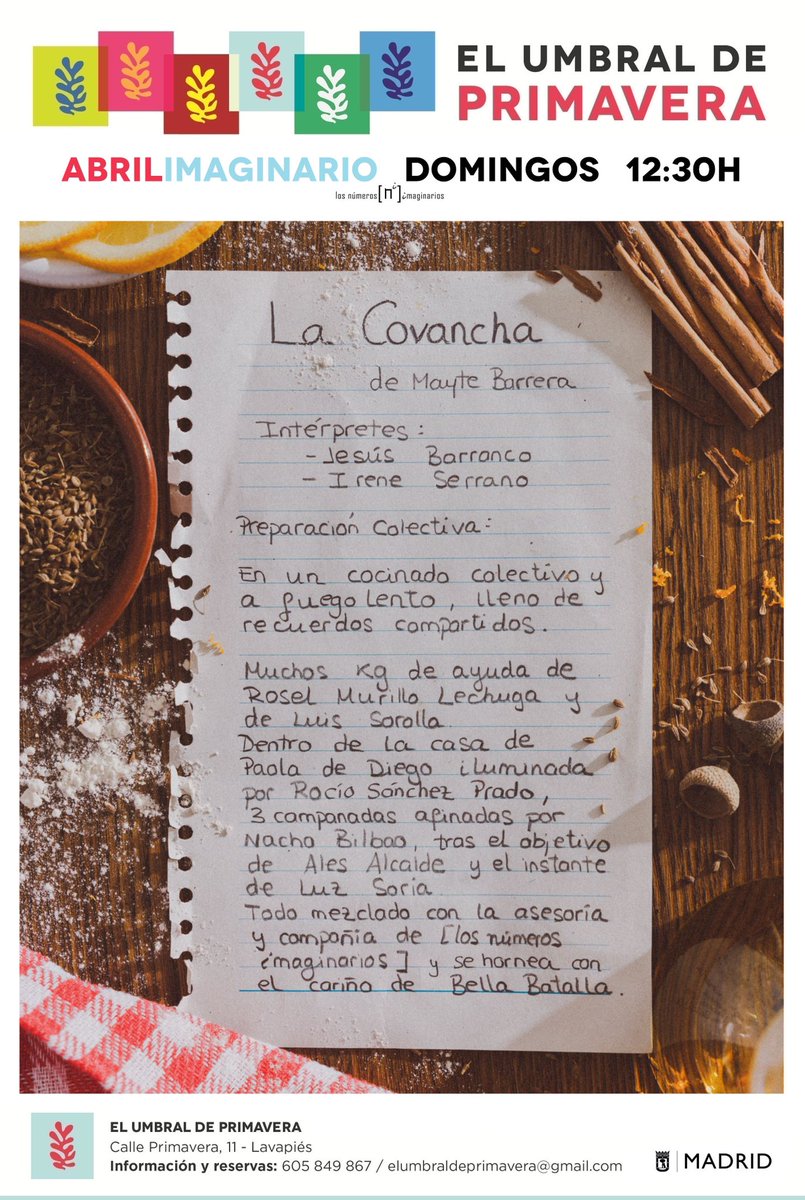 EL UMBRAL DE
PRIMAVERA
ABRILIMAGINARIO DOMINGOS 12:30H
los números [n^i] ¡maginarios
La Covancha
de Mayte Barrera
Intérpretes:
- Jesús Barranco
- Irene Serrano
Preparación Colectiva:
En un cocinado colectivo y
a fuego lento, lleno de
recuerdos compartidos.
Muchos kg de ayuda de
Rosel Murillo Lechuga y
de Luis Sorolla.
Dentro de la casa de
Paola de Diego iluminada
por Rocío Sánchez Prado,
3 campanadas afinadas por
Nacho Bilbao, tras el objetivo
de Ales Alcalde y el instante
de Luz Soria.
Todo mezclado con la asesoría
y compañía de [los números
¡maginarios] y se hornea con
el cariño de Bella Batalla.
EL UMBRAL DE PRIMAVERA
Calle Primavera, 11 - Lavapiés
Información y reservas: 605 849 867 / elumbraldeprimavera@gmail.com
MADRID